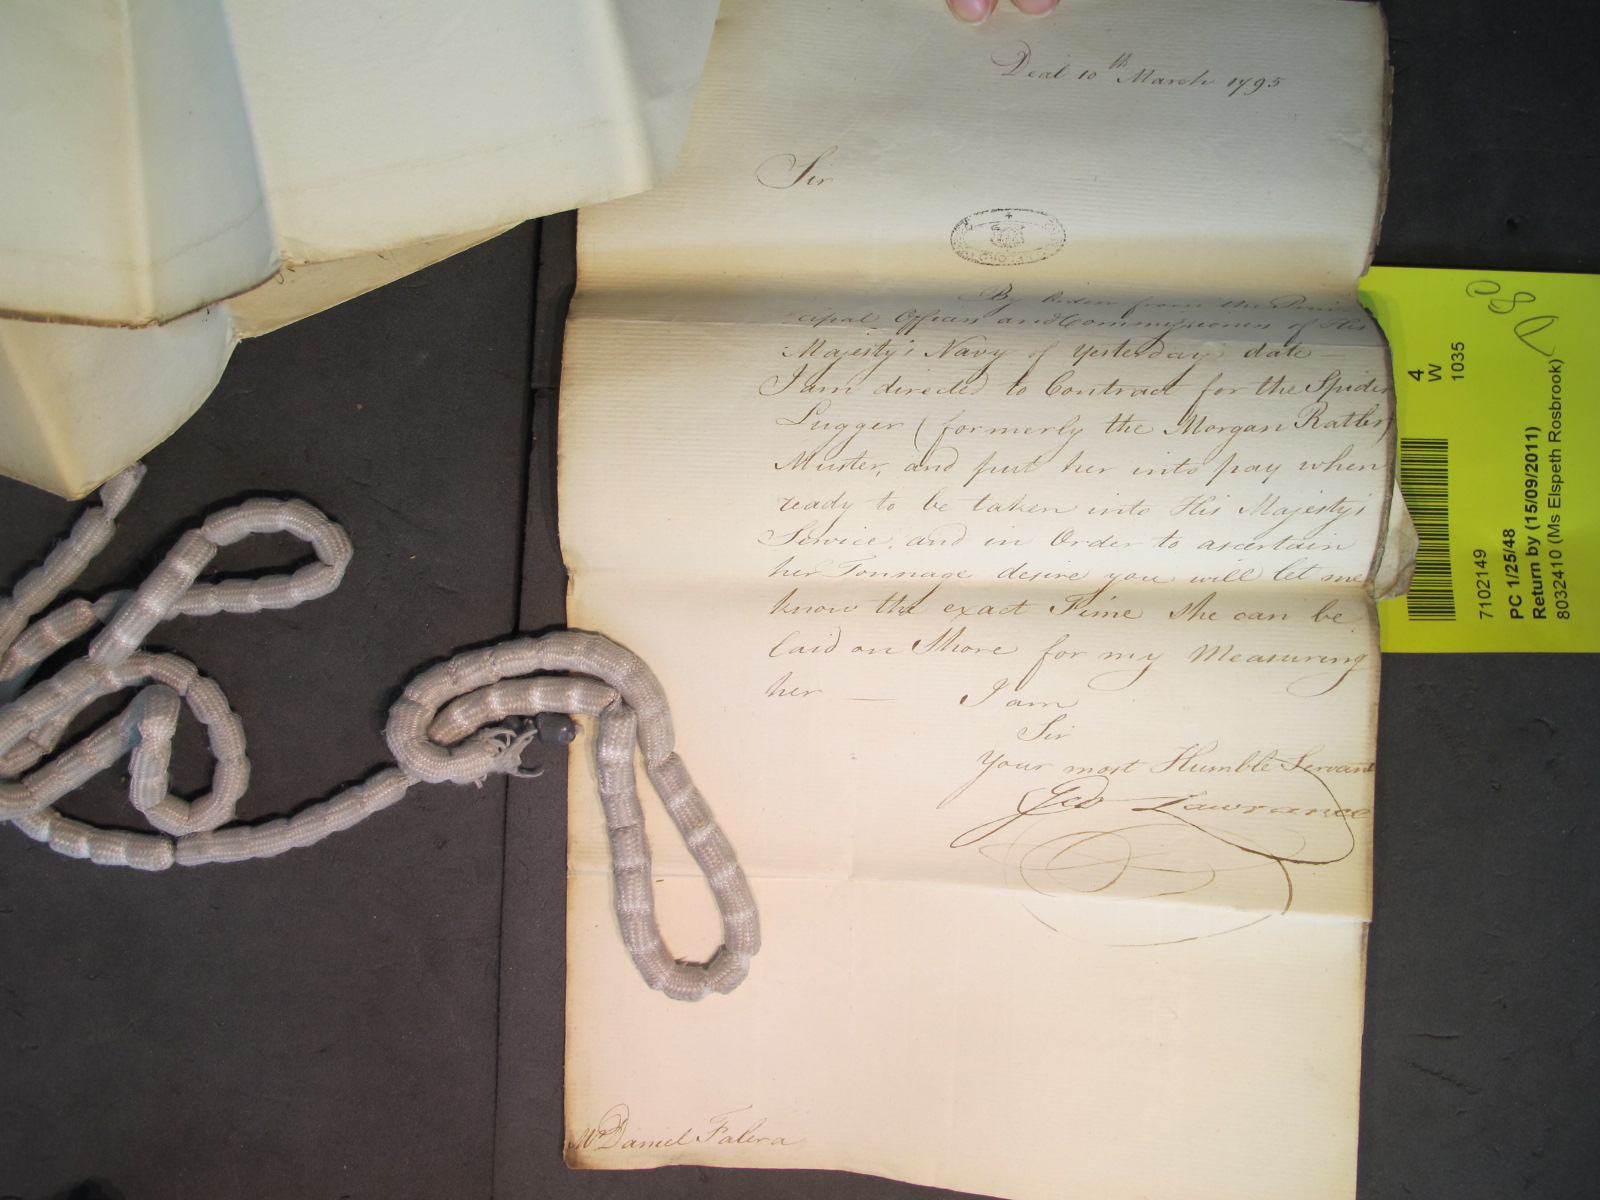 Deal 10th March 1795
Sir
By Order from the Prin
cipal Officers and Commissioners of His
Majesty's Navy of Yesterday date
I am directed to Contract for the Spider
Lugger (formerly the Morgan Ratler)
Muster, and put her into pay when
ready to be taken into His Majesty's
Service, and in Order to ascertain
her Tonnage desire you will let me
know the exact Time she can be
laid on Shore for my Measuring
her — I am
Sir
Your most Humble Servant
Geo Lawrance
Mr Daniel Falera
4
W
1035
7102149
PC 1/25/48
Return by (15/09/2011)
8032410 (Ms Elspeth Rosbrook)